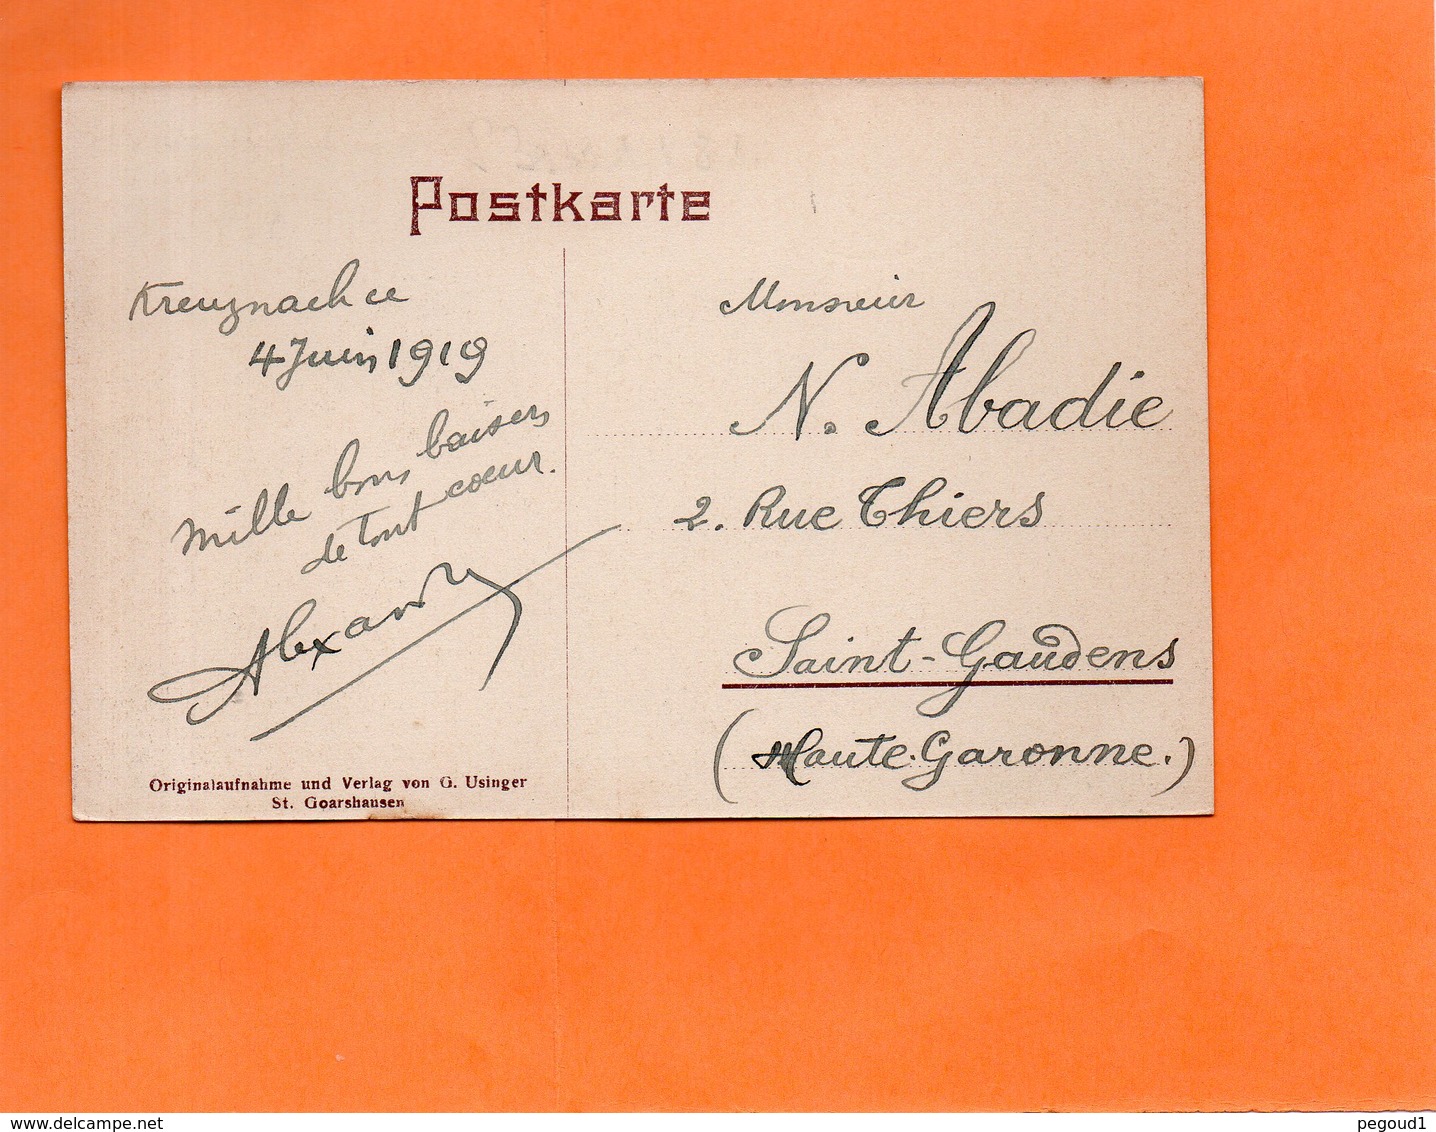 Postkarte
Kreuznach ce
4 Juin 1919
Mille bons baisers
de tout cœur.
Alexandre
Originalaufnahme und Verlag von G. Usinger
St. Goarshausen
Monsieur
N. Abadie
2. Rue Thiers
Saint-Gaudens
(Haute-Garonne.)
www.delcampe.net
pegoud1